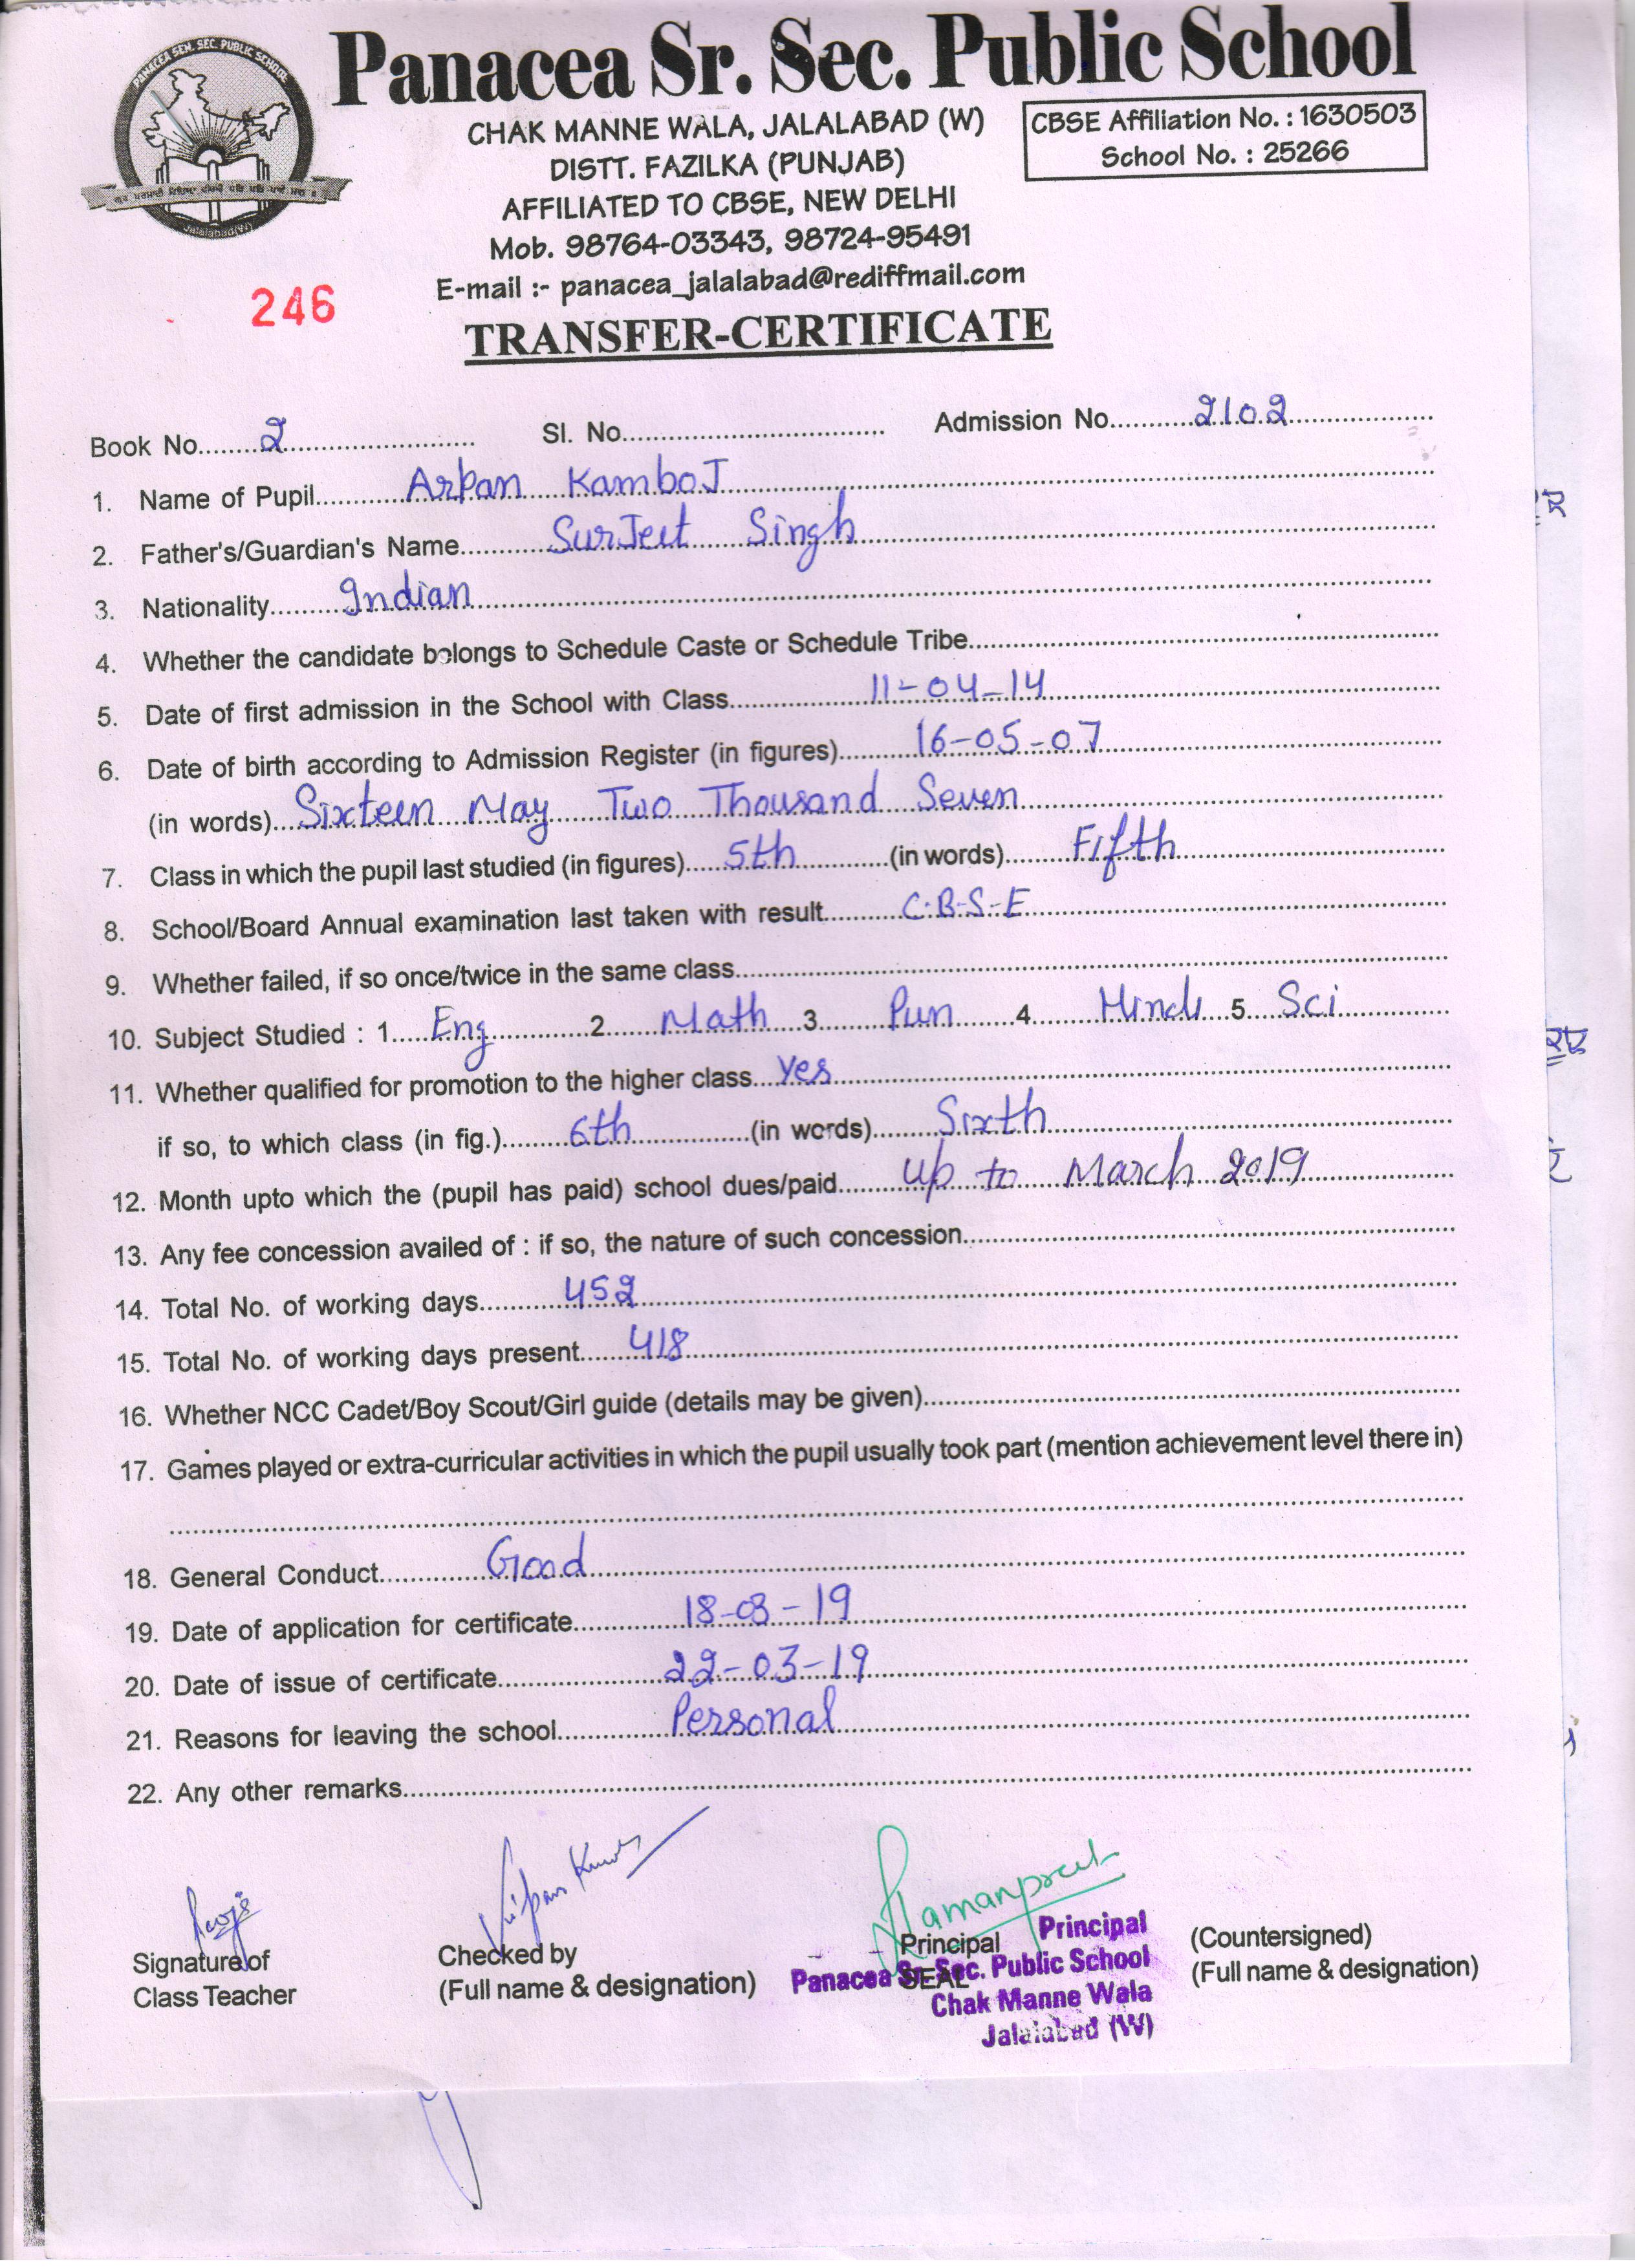 PANACEA SEN. SEC. PUBLIC SCHOOL
Jalalabad(W)
Panacea Sr. Sec. Public School
CHAK MANNE WALA, JALALABAD (W)
DISTT. FAZILKA (PUNJAB)
AFFILIATED TO CBSE, NEW DELHI
Mob. 98764-03343, 98724-95491
E-mail :- panacea_jalalabad@rediffmail.com
CBSE Affiliation No. : 1630503
School No. : 25266
246
TRANSFER-CERTIFICATE
Book No. 2 Sl. No. Admission No. 2102
1. Name of Pupil Arpan Kamboj
2. Father's/Guardian's Name Surjeet Singh
3. Nationality Indian
4. Whether the candidate belongs to Schedule Caste or Schedule Tribe
5. Date of first admission in the School with Class 11-04-14
6. Date of birth according to Admission Register (in figures) 16-05-07
(in words) Sixteen May Two Thousand Seven
7. Class in which the pupil last studied (in figures) 5th (in words) Fifth
8. School/Board Annual examination last taken with result C.B-S-E
9. Whether failed, if so once/twice in the same class
10. Subject Studied : 1 Eng 2 Math 3 Pun 4 Hindi 5 Sci
11. Whether qualified for promotion to the higher class Yes
if so, to which class (in fig.) 6th (in words) Sixth
12. Month upto which the (pupil has paid) school dues/paid up to March 2019
13. Any fee concession availed of : if so, the nature of such concession
14. Total No. of working days 452
15. Total No. of working days present 418
16. Whether NCC Cadet/Boy Scout/Girl guide (details may be given)
17. Games played or extra-curricular activities in which the pupil usually took part (mention achievement level there in)
18. General Conduct Good
19. Date of application for certificate 18-03-19
20. Date of issue of certificate 22-03-19
21. Reasons for leaving the school Personal
22. Any other remarks
Signature of
Class Teacher
Vipan Kumar
Checked by
(Full name & designation)
Ramanpreet
Principal
SEAL
Principal
Panacea Sr. Sec. Public School
Chak Manne Wala
Jalalabad (W)
(Countersigned)
(Full name & designation)